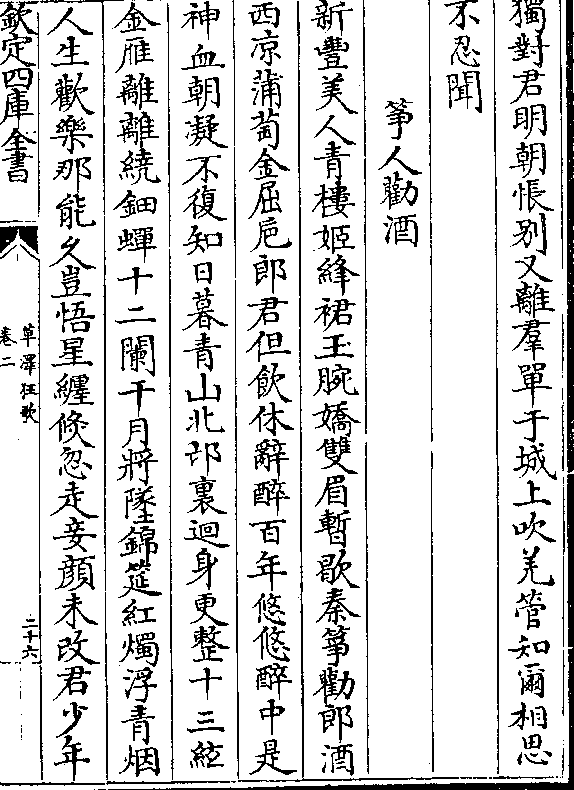 獨對君明朝悵别又離羣單于城上吹羌管知爾相思
不忍聞
箏人勸酒
新豐美人青樓姬絳裙玉腕嬌雙眉暫歇秦箏勸郎酒
西凉蒲萄金屈巵郎君但飲休辭醉百年悠悠醉中是
神血朝凝不復知日暮青山北邙裏迴身更整十三絃
金雁離離繞鈿蟬十二闌干月將墜錦筵紅燭浮青烟
人生歡樂那能久豈悟星纏倐忽走妾顔未改君少年
欽定四庫全書
草澤狂歌
卷二
二十六